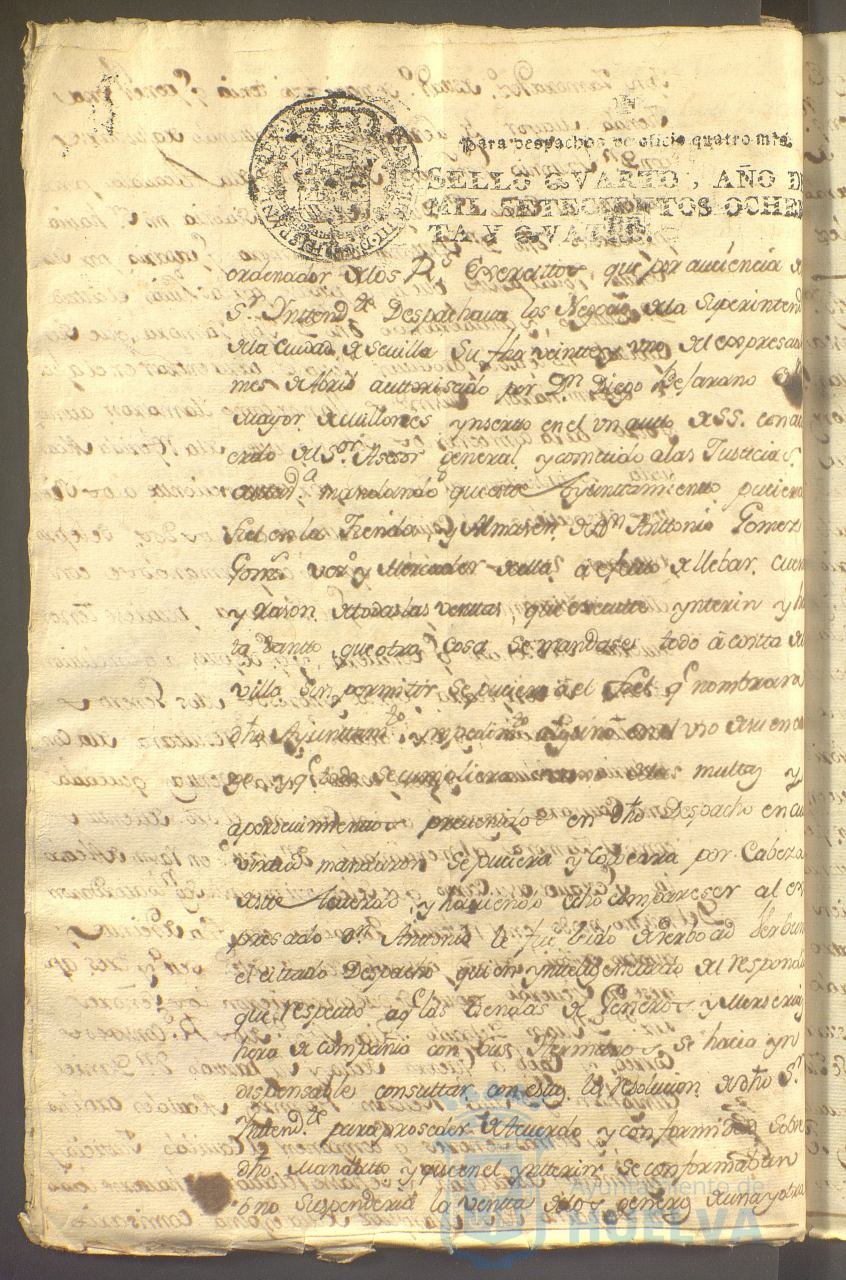 Para despachos de oficio quatro mrs.
SELLO QVARTO, AÑO D
MIL SETECIENTOS OCHEN
TA Y QVATRO.
ordenador de los Rs Exercitos, que por auciencia de
Sr Yntendte Despachava los Negos de la Superintend
de la Ciudad de Sevilla su fha veintte y uno del expresado
mes de Abril autorisado por Dn Diego Bejarano
Mayor de Millones ynserto en el vn autto de SS. con acu
erdo del Sor Asesor general, y cometido a las Justicias
mandando que este Ayuntamiento puciera
Fiel en la Tienda, y Almasen de Dn Anttonio Gomez
vezo y Mercader de ella, a efecto de llebar cuen
y Rason de todas las venttas, que execute ynterin y ha
ta tantto, que otra cosa se mandase, todo à contta de
villa sin permitir se pusiera à el Fiel qe nombrara
dho Ayunttamto ympedimto alguno en el vso de su enca
go y qe todo se cumpliera vajo las multas y
apersevimienttos prevenidos en dho Despacho en cu
virtud mandaron se puciera y Cosiera por Cabeza
de este Acuerdo, y haviendo dho compareser al ex
presado Dn Antonio le fue leido de Verbo ad Verbum
el citado Despacho quien ynteligenciado de el respondio
que respecto a qe las tiendas de Generos y Merseria
hera de compañia con sus Hermanos se hacia yn
dispensable consultar con estos la resolucion de dho Sr
Yntendte para proseder de Acuerdo y conformidad sobre
dho Mandatto y que en el ynterin se conformaban
ò no suspenderia la ventta de los generos de una y otra
Ayuntamiento de
HUELVA